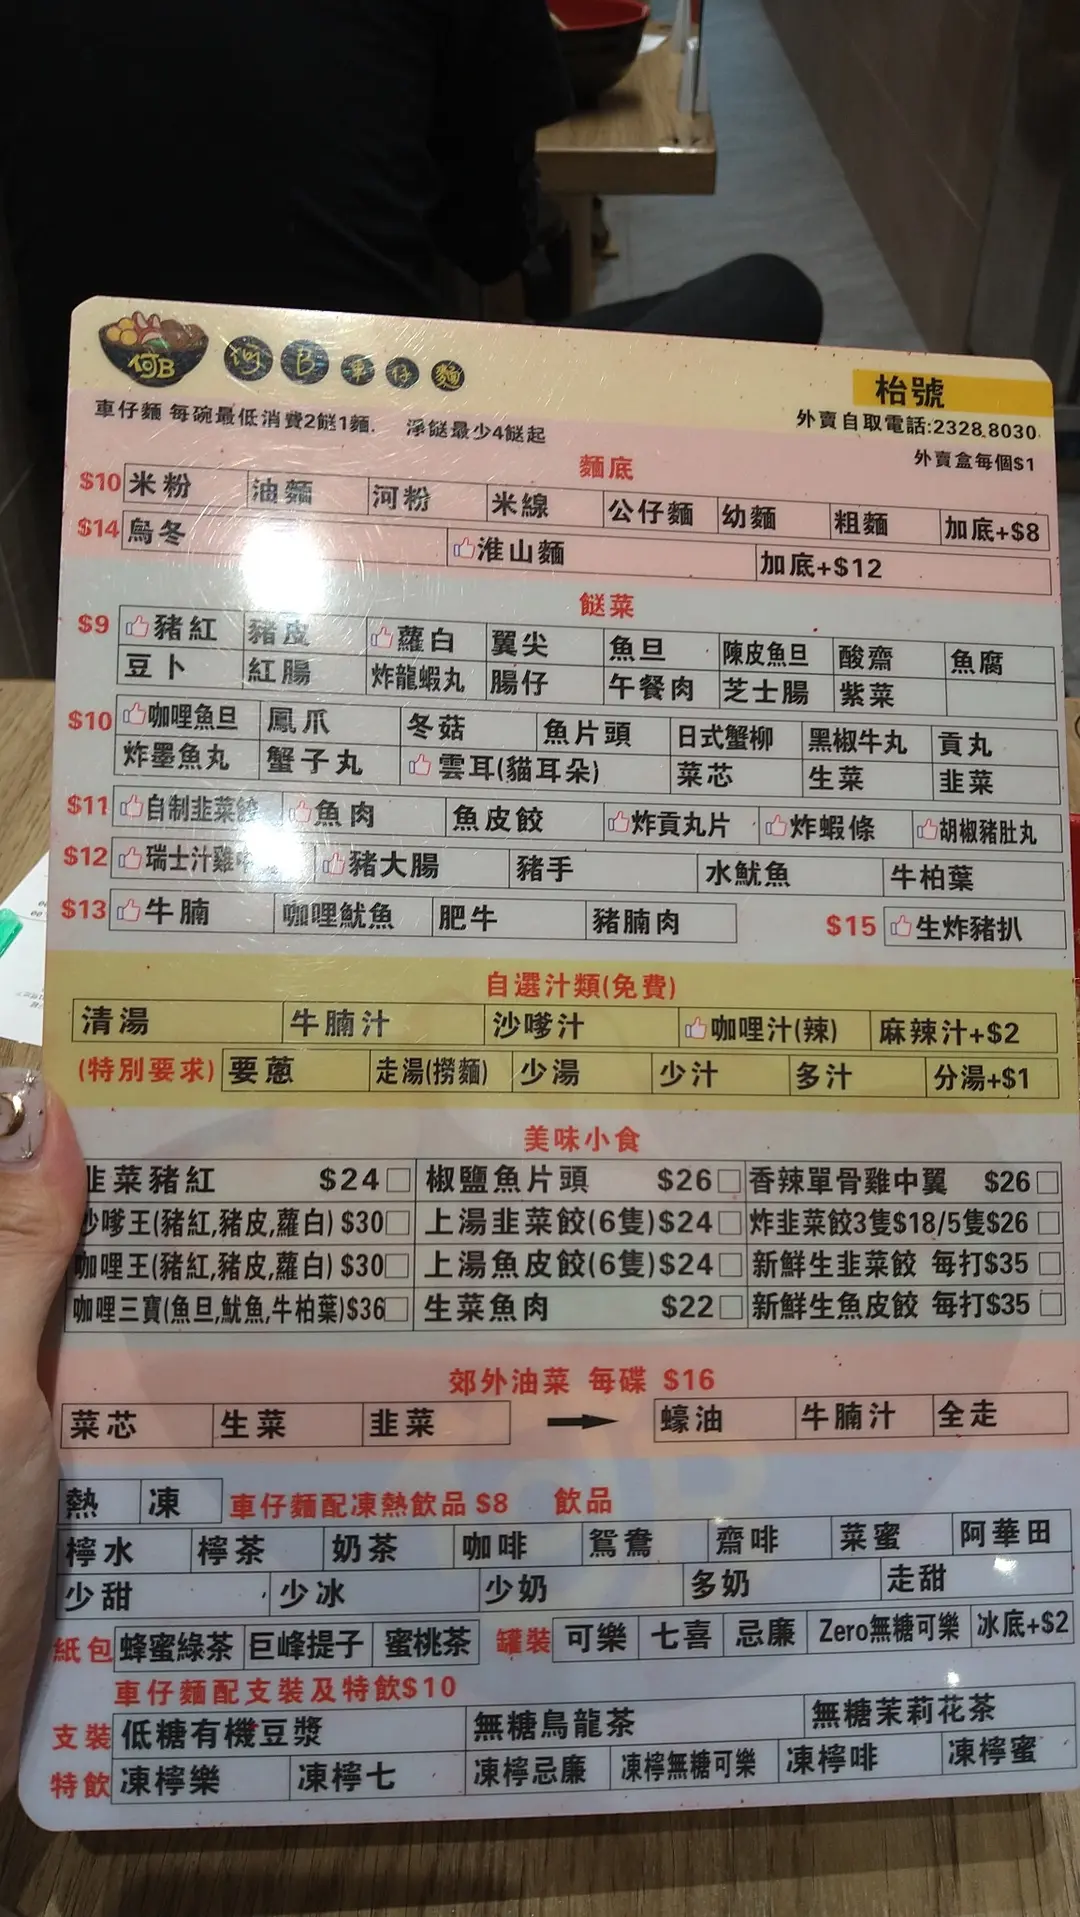 何B 何B車仔麵
枱號
車仔麵 每碗最低消費2餸1麵. 淨餸最少4餸起
外賣自取電話:2328 8030
外賣盒每個$1
麵底
$10 米粉 油麵 河粉 米線 公仔麵 幼麵 粗麵 加底+$8
$14 烏冬 淮山麵 加底+$12
餸菜
$9 豬紅 豬皮 蘿白 翼尖 魚旦 陳皮魚旦 酸齋 魚腐
豆卜 紅腸 炸龍蝦丸 腸仔 午餐肉 芝士腸 紫菜
$10 咖哩魚旦 鳳爪 冬菇 魚片頭 日式蟹柳 黑椒牛丸 貢丸
炸墨魚丸 蟹子丸 雲耳(貓耳朵) 菜芯 生菜 韭菜
$11 自制韭菜餃 魚肉 魚皮餃 炸貢丸片 炸蝦條 胡椒豬肚丸
$12 瑞士汁雞中 豬大腸 豬手 水魷魚 牛柏葉
$13 牛腩 咖哩魷魚 肥牛 豬腩肉 $15 生炸豬扒
自選汁類(免費)
清湯 牛腩汁 沙嗲汁 咖哩汁(辣) 麻辣汁+$2
(特別要求) 要蔥 走湯(撈麵) 少湯 少汁 多汁 分湯+$1
美味小食
韭菜豬紅 $24 椒鹽魚片頭 $26 香辣單骨雞中翼 $26
沙嗲王(豬紅,豬皮,蘿白) $30 上湯韭菜餃(6隻)$24 炸韭菜餃3隻$18/5隻$26
咖哩王(豬紅,豬皮,蘿白) $30 上湯魚皮餃(6隻)$24 新鮮生韭菜餃 每打$35
咖哩三寶(魚旦,魷魚,牛柏葉)$36 生菜魚肉 $22 新鮮生魚皮餃 每打$35
郊外油菜 每碟 $16
菜芯 生菜 韭菜 → 蠔油 牛腩汁 全走
熱 凍 車仔麵配凍熱飲品 $8 飲品
檸水 檸茶 奶茶 咖啡 鴛鴦 齋啡 菜蜜 阿華田
少甜 少冰 少奶 多奶 走甜
紙包 蜂蜜綠茶 巨峰提子 蜜桃茶 罐裝 可樂 七喜 忌廉 Zero無糖可樂 冰底+$2
車仔麵配支裝及特飲$10
支裝 低糖有機豆漿 無糖烏龍茶 無糖茉莉花茶
特飲 凍檸樂 凍檸七 凍檸忌廉 凍檸無糖可樂 凍檸啡 凍檸蜜